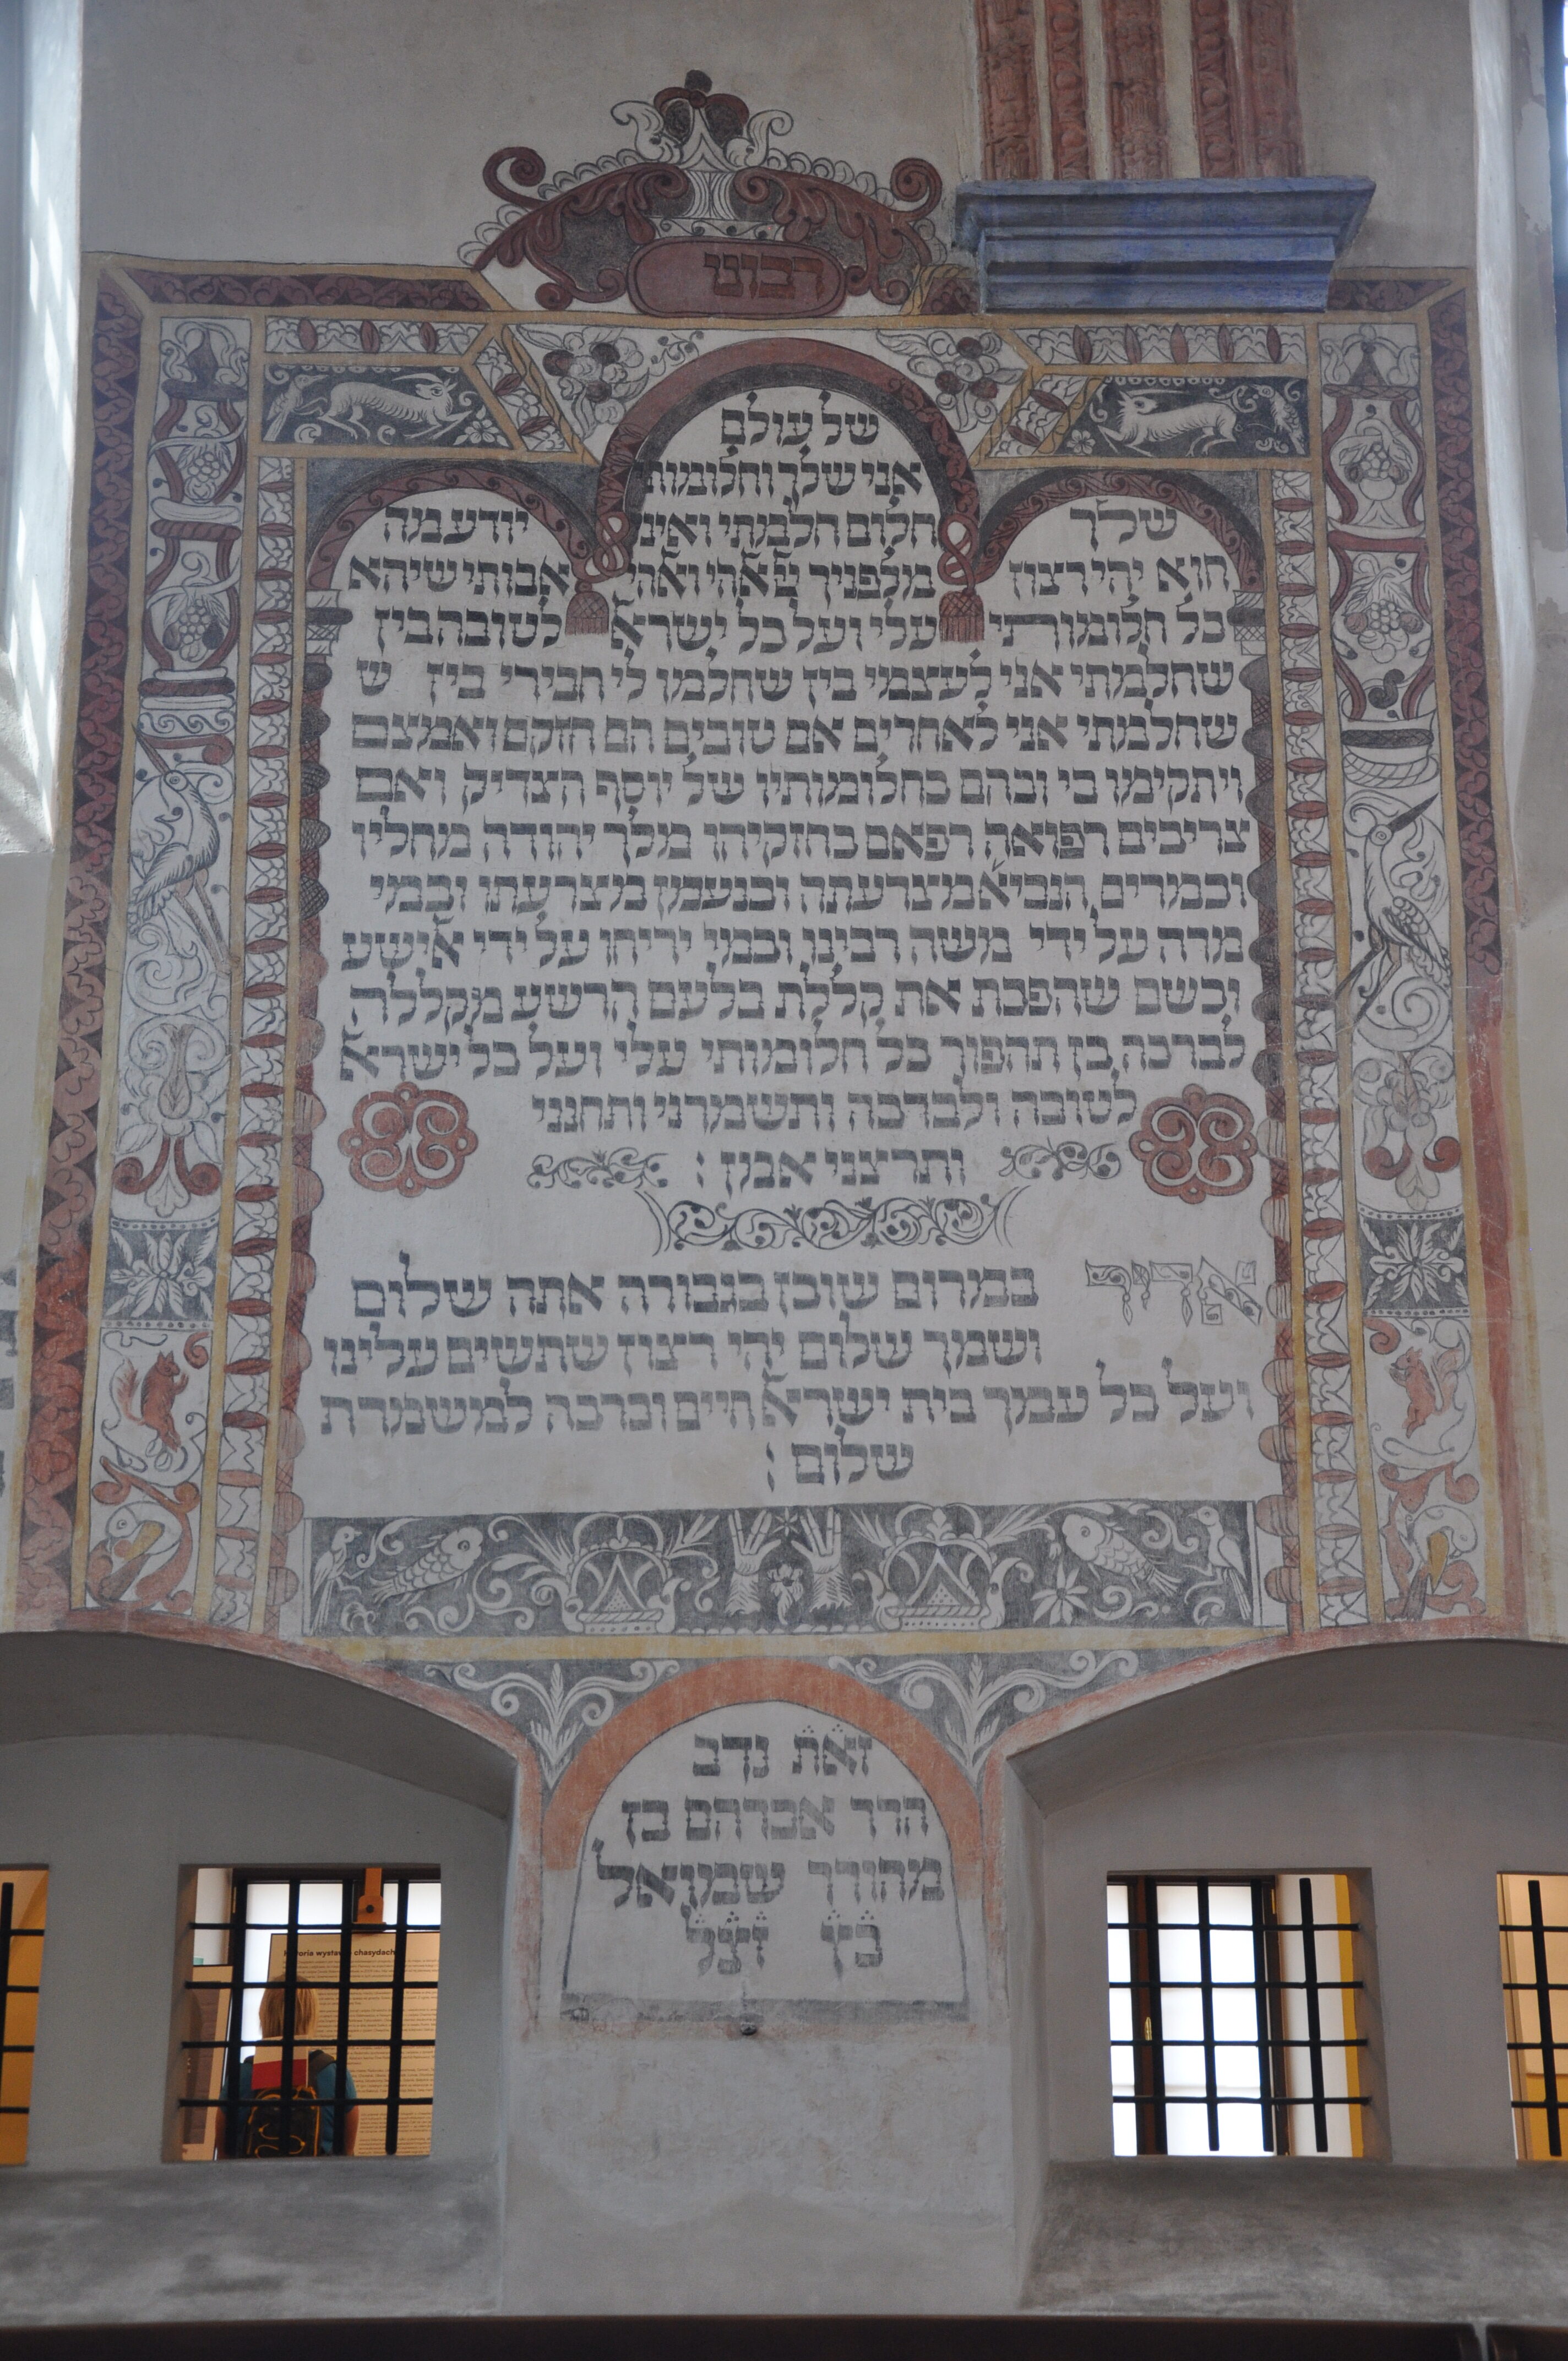 רבוני
של עולם
אני שלך וחלומותי
שלך חלום חלמתי ואיני יודע מה
הוא יהי רצון מלפניך ה̈ א̈הי וא̈הי אבותי שיהא
כל חלומותי עלי ועל כל ישרא̈ לטובה בין
שחלמתי אני לעצמי בין שחלמו לי חבירי בין ש
שחלמתי אני לאחרים אם טובים הם חזקם ואמצם
ויתקימו בי ובהם כחלומותיו של יוסף הצדיק ואם
צריכים רפואה רפאם כחזקיהו מלך יהודה מחליו
וכמרים הנביאֿ מצרעתה וכנעמן מצרעתו וכמי
מרה על ידי משה רבינו וכמי יריחו על ידי אלישע
וכשם שהפכת את קללת בלעם הרשע מקללה
לברכה כן תהפוך כל חלומותי עלי ועל כל ישרא̈
לטובה ולברכה ותשמרני ותחנני
ותרצני אמן :
אדיר במרום שוכן בגבורה אתה שלום
ושמך שלום יהי רצון שתשים עלינו
ועל כל עמך בית ישרא̈ חיים וברכה למשמרת
שלום :
זאת נדב
הרר אברהם בן
מהורר שמואל
כ̇ץ̇ ז̇צ̇ל̇
Historia wystawy o chasydach